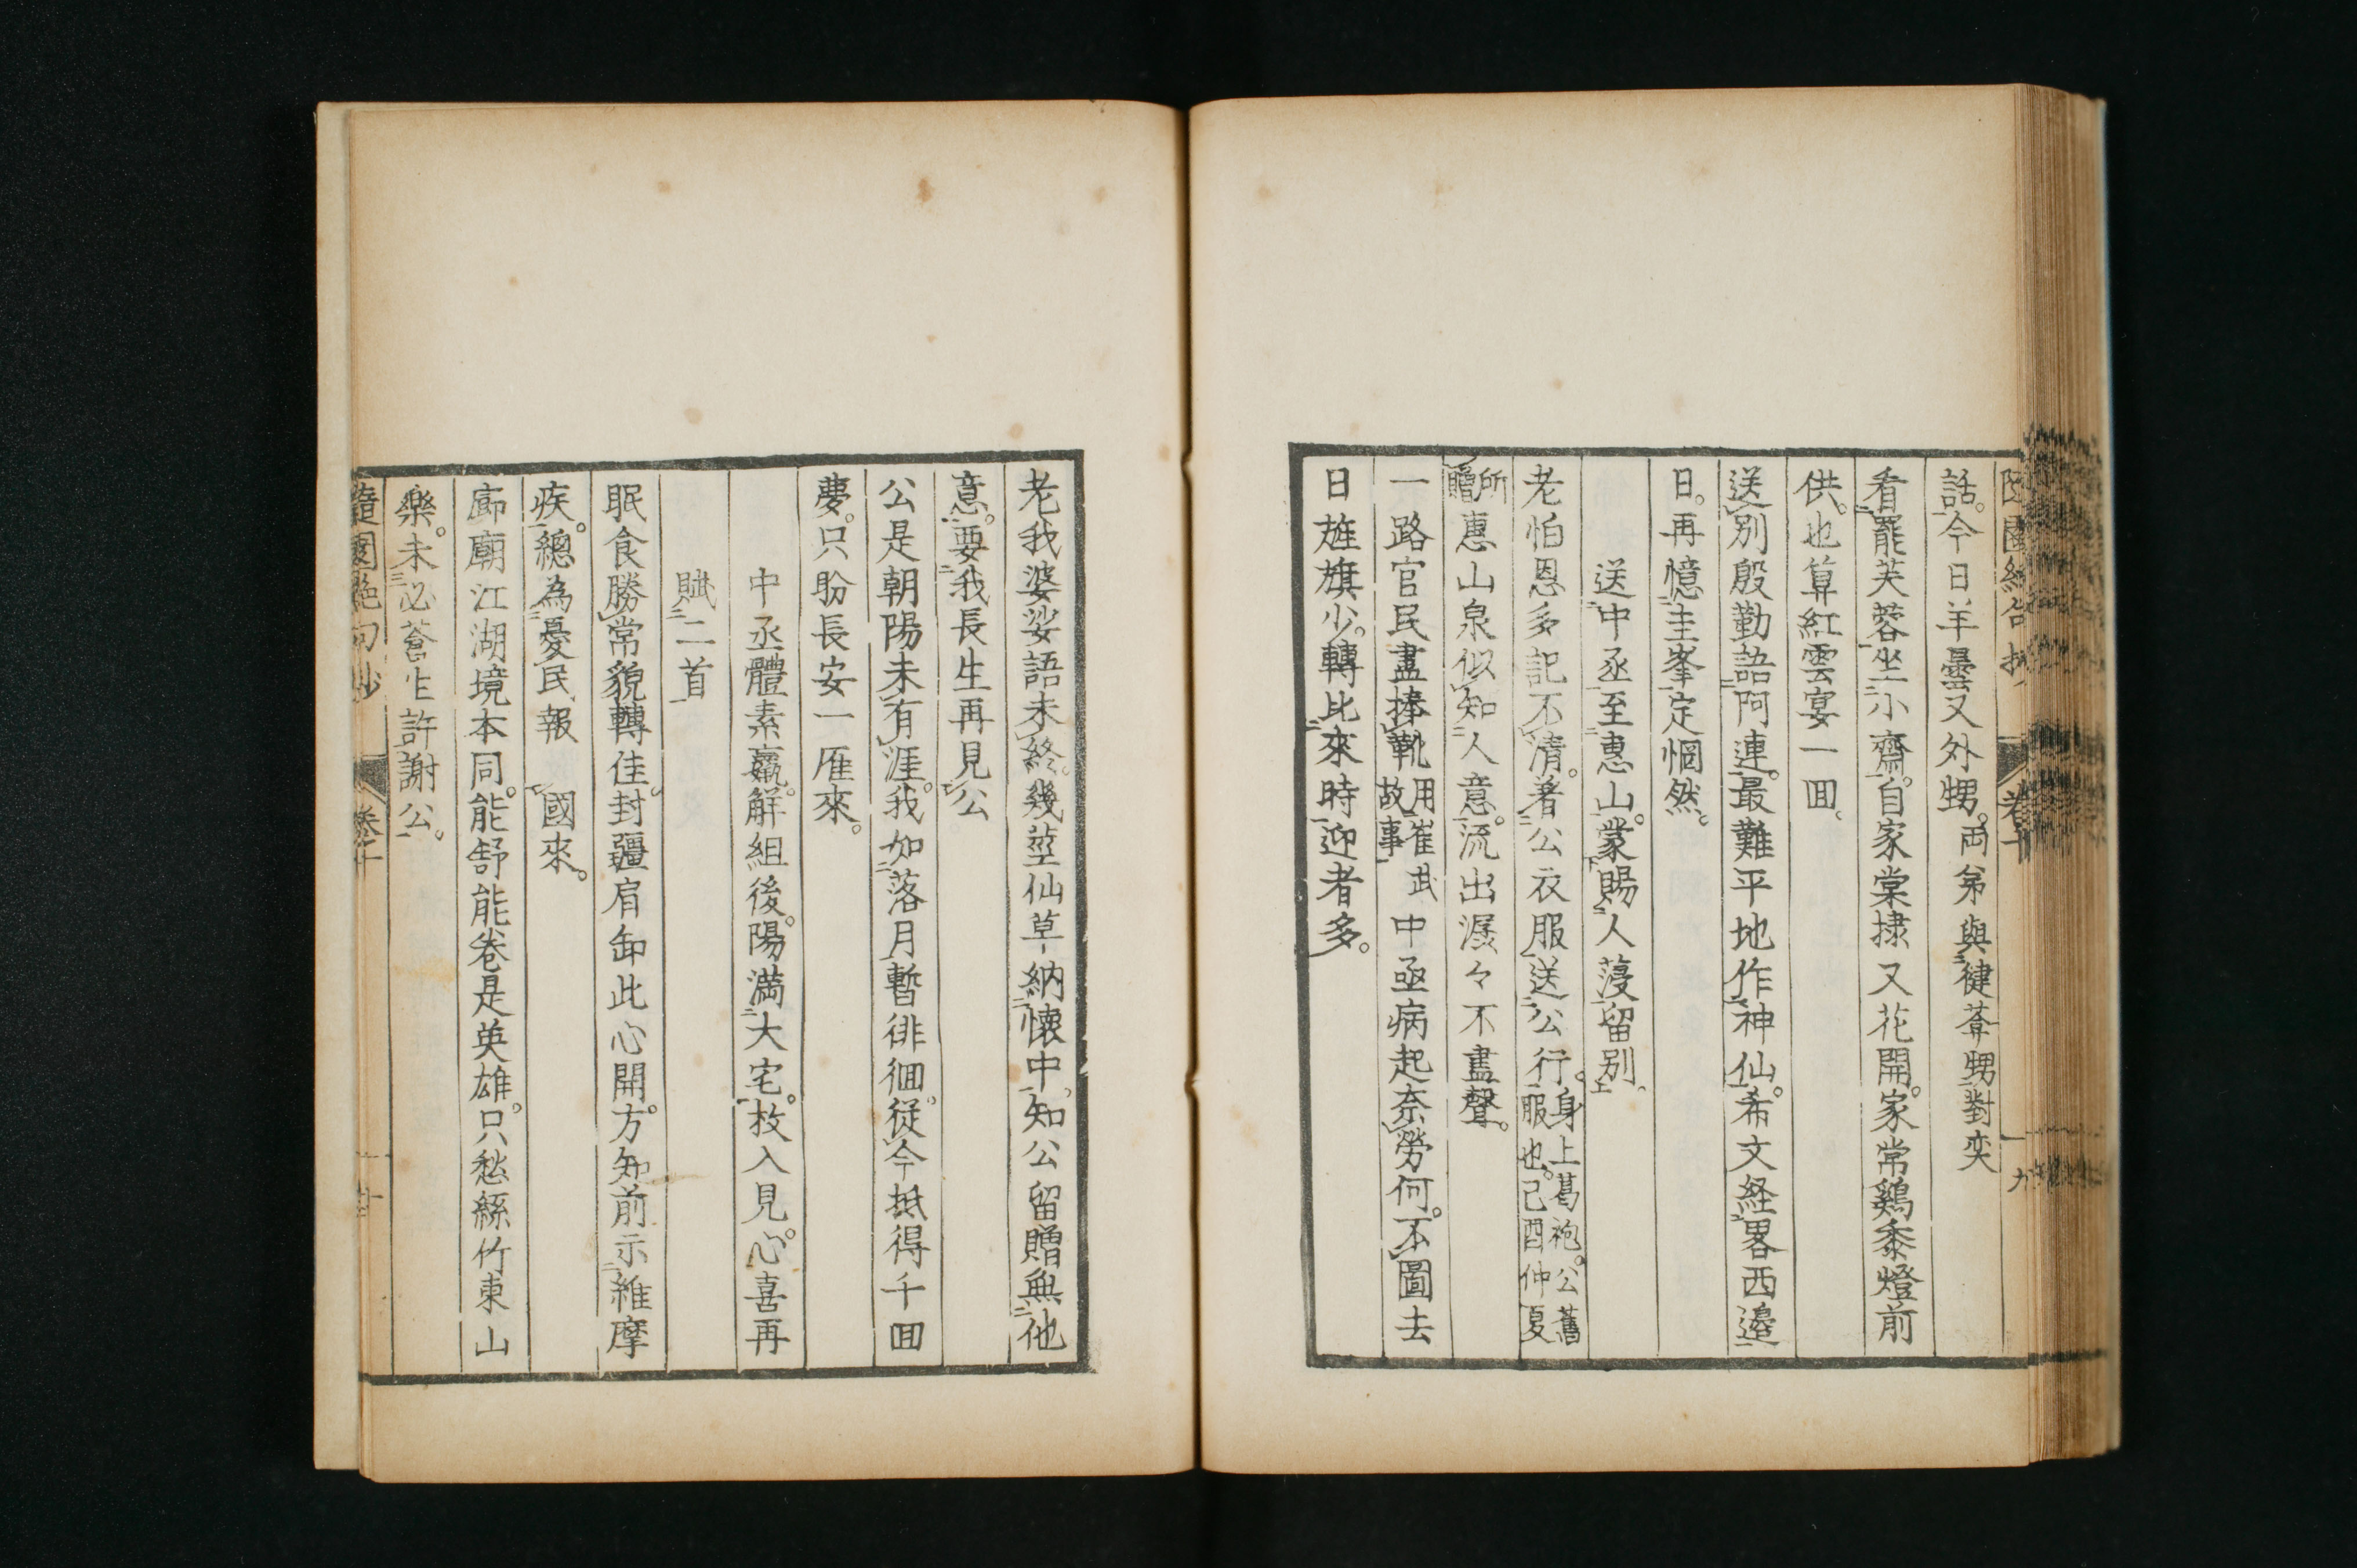 話。今日羊曇又外甥。両弟與健葊甥對奕
看罷芙蓉坐小齋。自家棠棣又花開。家常鷄黍燈前
供。也算紅雲宴一回。
送別殷勤語阿連。最難平地作神仙。希文経畧西邉
日。再憶圭峯定惘然。
送中丞至惠山。蒙賜人葠留別。
老怕恩多記不清。著公衣服送公行。身上葛袍。公舊
服也。己酉仲夏
所贈惠山泉似知人意。流出潺々不盡聲。
一路官民盡捧靴用崔武
故事中亟病起奈勞何。不圖去
日旌旗少。轉比來時迎者多。
老我婆娑語未終。幾莖仙草納懷中。知公留贈無他
意。要我長生再見公
公是朝陽未有涯。我如落月暫徘徊。從今抵得千回
夢。只盼長安一雁來。
中丞體素羸。解組後。陽滿大宅。枚入見。心喜再
賦二首
眠食勝常貌轉佳。封疆肩卸此心開。方知前示維摩
疾。總為憂民報國來。
廊廟江湖境本同。能舒能卷是英雄。只愁絲竹東山
樂。未必蒼生許謝公。
隨園絶句抄 卷十